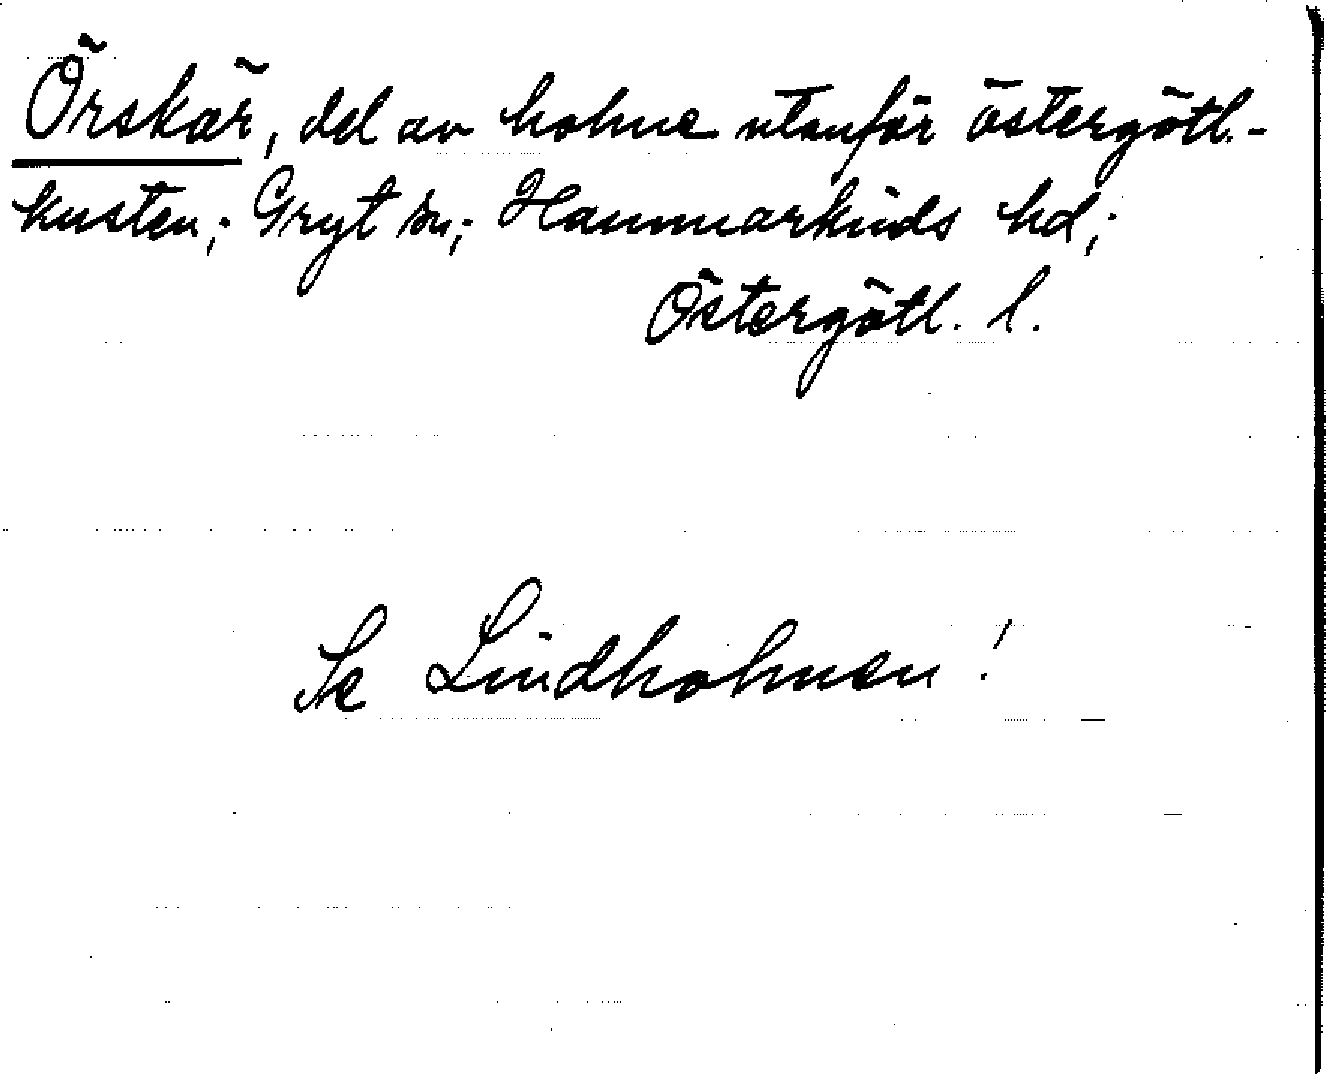 Örskär, del av holme utanför östergötl.-
kusten; Gryt sn; Hammarkinds hd;
Östergötl. l.
Se Lindholmen!